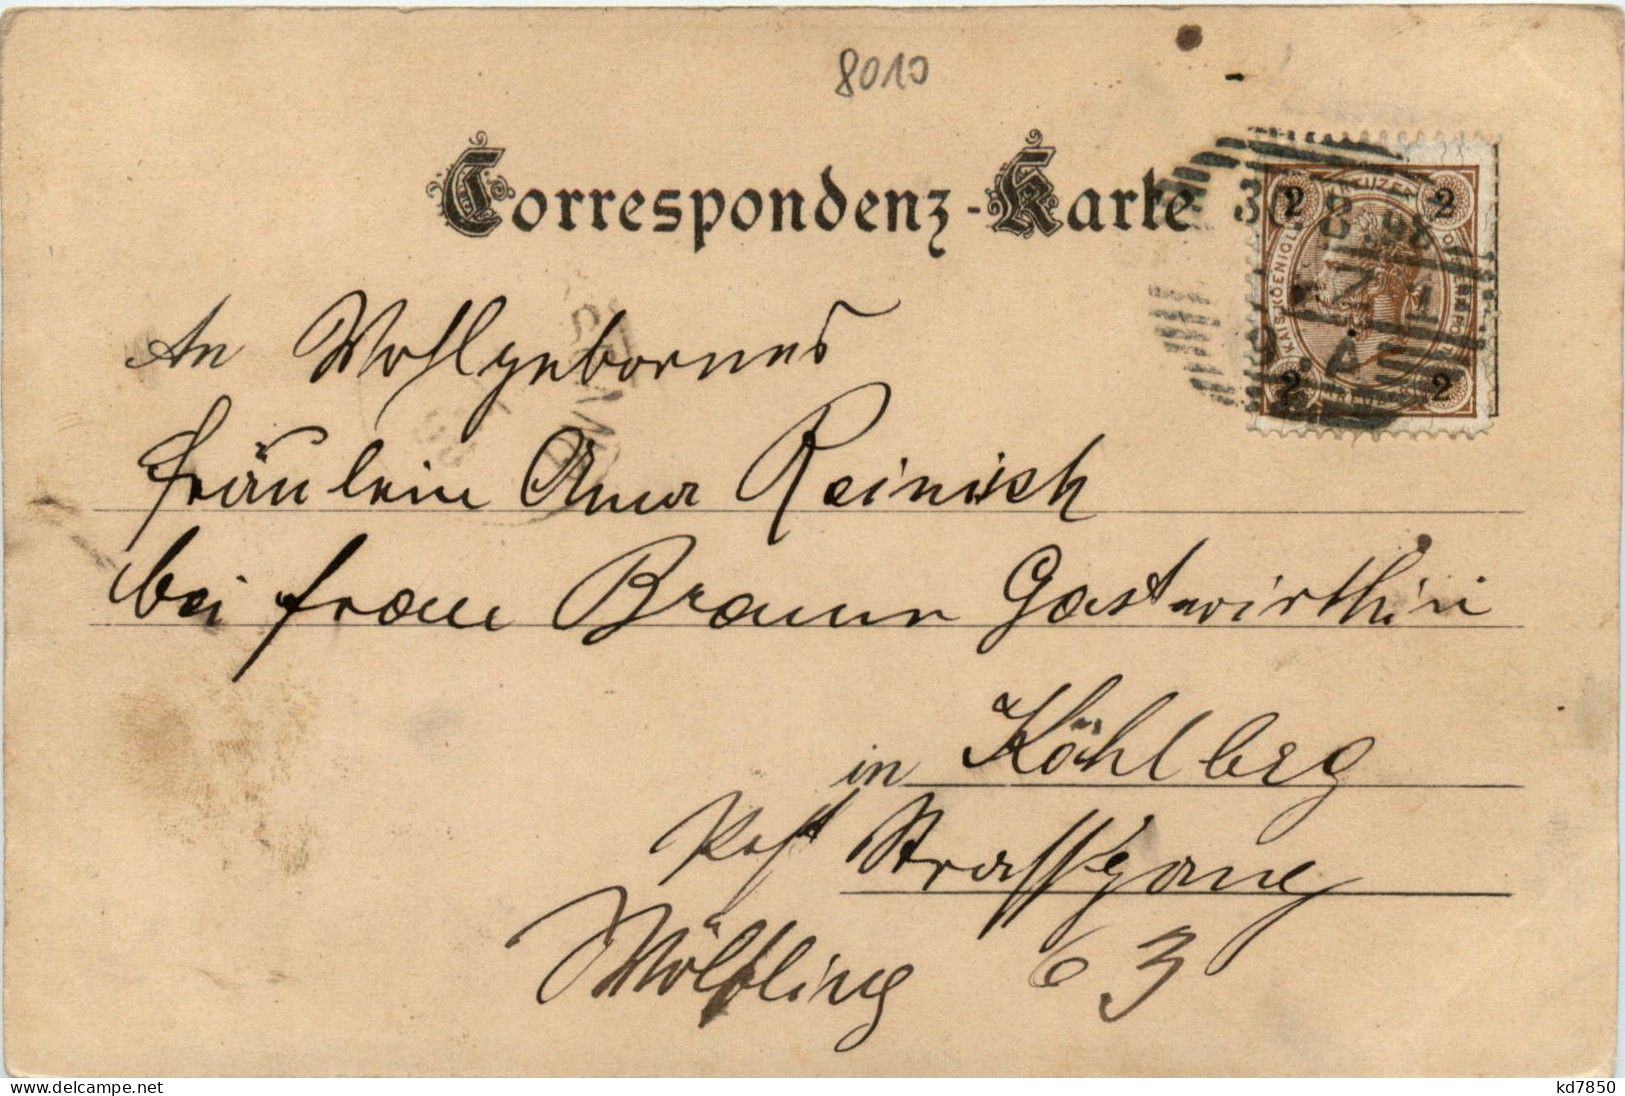 8010
Correspondenz-Karte
2 KREUZER 2
30 8 98
2 2
An Wohlgebornes
fräulein Anna Reinisch
bei frau Braun Gastwirthin
in Köhlberg
Post Strassgang
Wölfling 63
delcampe.net
kd7850